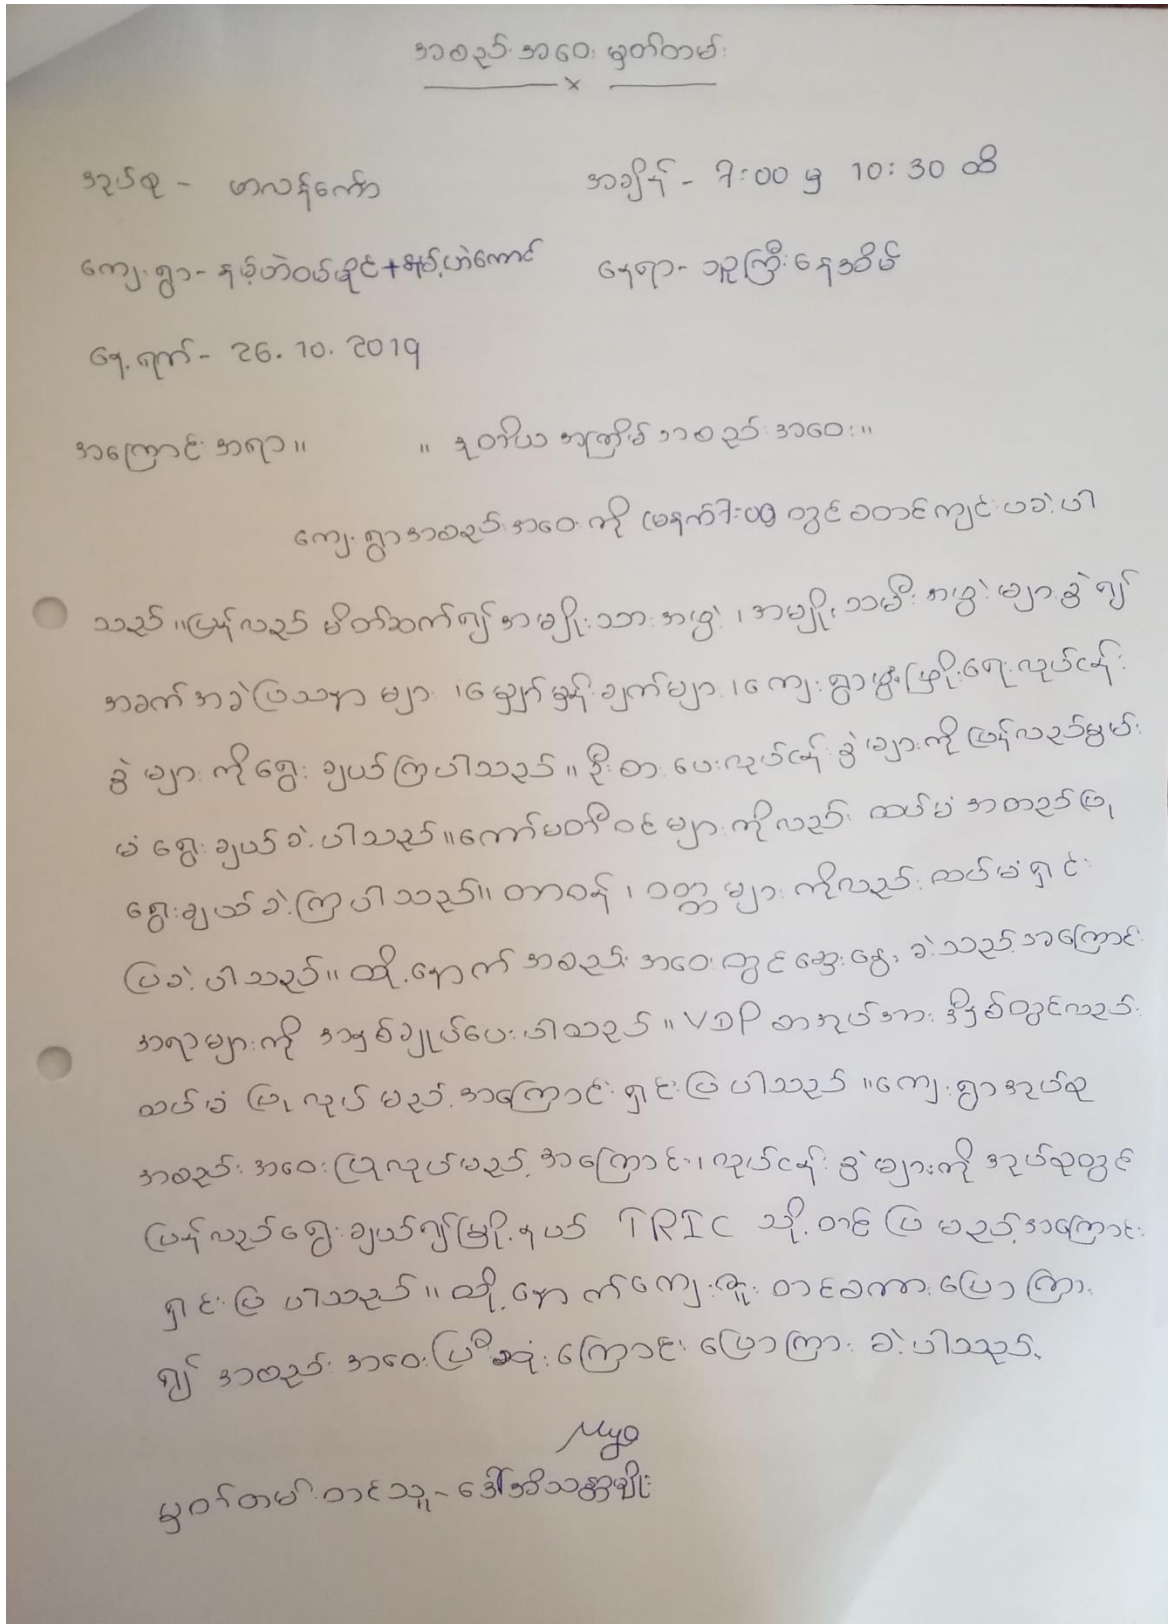 အစည်းအဝေး မှတ်တမ်း
အုပ်စု - ဟာလန်ကော် အချိန် - 7:00 မှ 10:30 ထိ
ကျေးရွာ - နေရာ - သူကြီးနေအိမ်
နေ့ရက် - 26.10.2019
အကြောင်းအရာ။ ။ ဒုတိယ အကြိမ် အစည်းအဝေး။
ကျေးရွာအစည်းအဝေးကို မနက်7:00 တွင် စတင်ကျင်းပခဲ့ပါ
သည်။ပြန်လည် မိတ်ဆက်၍ အမျိုးသားအဖွဲ့၊ အမျိုးသမီးအဖွဲ့များခွဲ၍
အခက်အခဲပြဿနာများ၊မျှော်မှန်းချက်များ၊ကျေးရွာဖွံ့ဖြိုးရေးလုပ်ငန်း
ခွဲများကိုရွေးချယ်ကြပါသည်။ ဦးစားပေးလုပ်ငန်းခွဲများကို ပြန်လည်မွမ်း
မံ ရွေးချယ်ခဲ့ပါသည်။ကော်မတီဝင်များကိုလည်း ထပ်မံ အတည်ပြု
ရွေးချယ်ခဲ့ကြပါသည်။ တာဝန်၊ ဝတ္တရာများကိုလည်း ထပ်မံရှင်း
ပြခဲ့ပါသည်။ ထို့နောက် အစည်းအဝေးတွင် ဆွေးနွေးခဲ့သည့် အကြောင်း
အရာများကို အနှစ်ချုပ်ပေးပါသည်။ VDP စာအုပ်အား ဒီနှစ်တွင်လည်း
ထပ်မံ ပြုလုပ်မည့်အကြောင်း ရှင်းပြပါသည်။ကျေးရွာအုပ်စု
အစည်းအဝေးပြုလုပ်မည့်အကြောင်း၊လုပ်ငန်းခွဲများကို အုပ်စုတွင်
ပြန်လည်ရွေးချယ်၍မြို့နယ် TRIC သို့ တင်ပြမည့်အကြောင်း
ရှင်းပြပါသည်။ ထို့နောက်ကျေးဇူးတင်စကားပြောကြား
၍ အစည်းအဝေးပြီးဆုံးကြောင်း ပြောကြားခဲ့ပါသည်။
Myo
မှတ်တမ်းတင်သူ - ဒေါ်အိသန္တာမျိုး